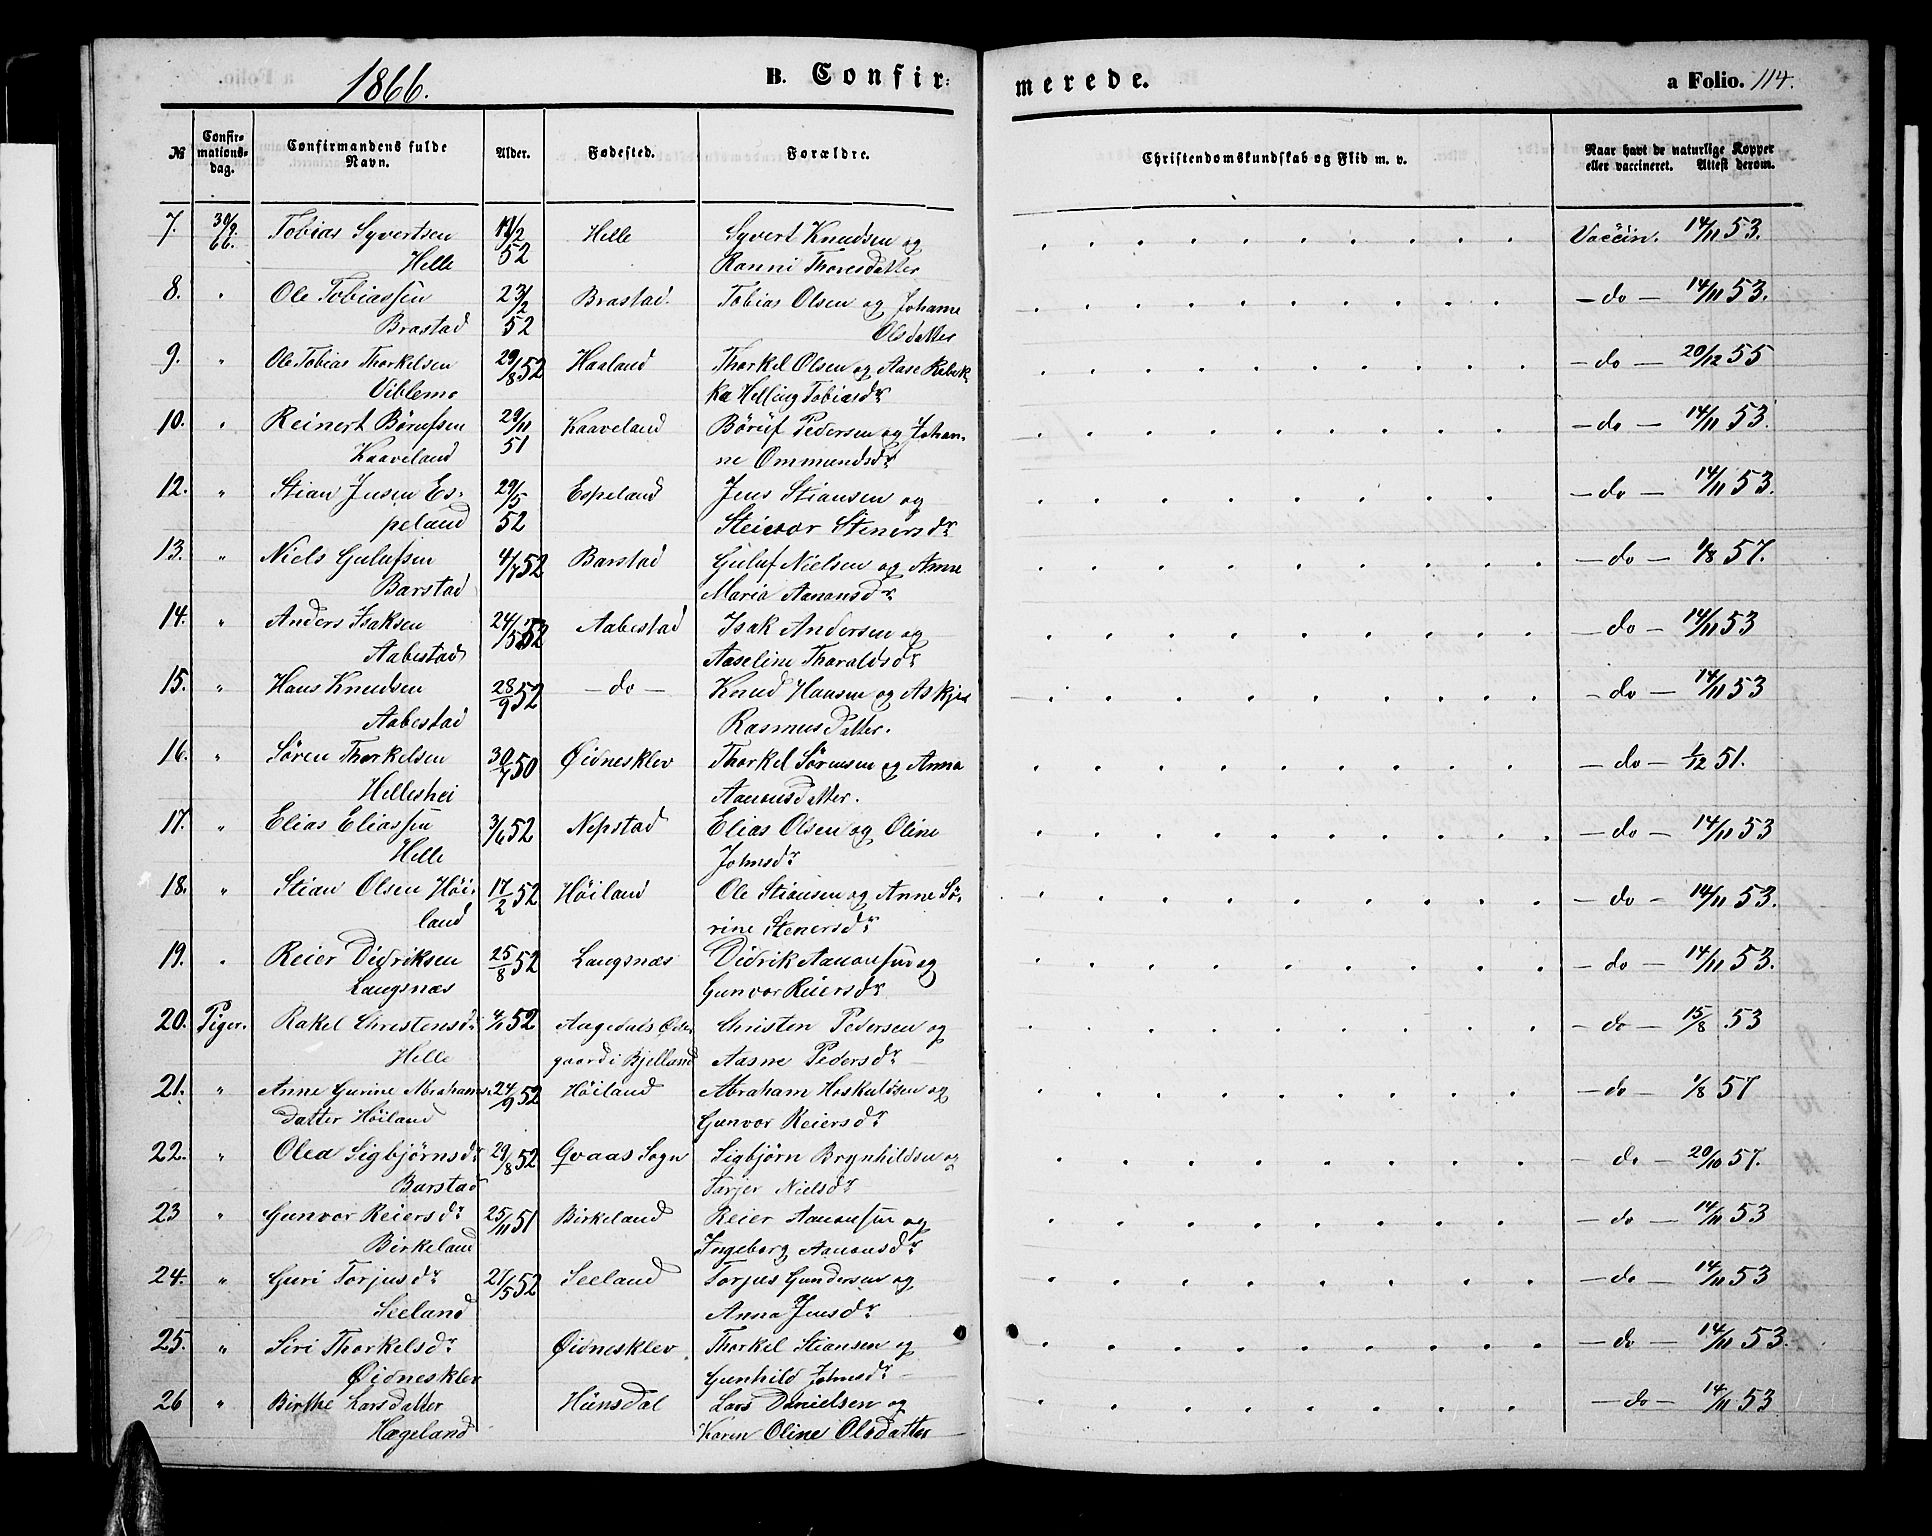 1866.
B. Confir:
merede.
a Folio. 114.
№
Confir-
mations-
dag.
Confirmandens fulde
Navn.
Alder.
Fødested.
Forældre.
Christendomskundskab og Flid m. v.
Naar havt de naturlige Kopper
eller vaccineret. Attest derom.
7. 30/9 Tobias Syvertsen 11/2 Helle Syvert Knudsen og Vaccin. 14/11 53.
66. Helle 52 Ranni Thoresdatter
8. " Ole Tobiassen 23/2 Brastad. Tobias Olsen og Johanne - do - 14/11 53.
Brastad 52 Olsdatter
9. " Ole Tobias Thorkelsen 29/8 52 Haaland Thorkel Olsen og Aase Rebek- - do - 20/12 55
Viblemo ka Helling Tobiasdr
10. " Reinert Børufsen 29/11 Kaaveland Børuf Pedersen og Johan- - do - 14/11 53.
Kaaveland 51 ne Ommundsdr
12. " Stian Jensen Es- 29/5 Espeland Jens Stiansen og - do - 14/11 53.
peland 52 Stenersdr
13. " Niels Gulufsen 4/7 52 Barstad Guluf Nielsen og Anne - do - 1/8 57.
Barstad Maria Aanonsdr
14. " Anders Isaksen 24/5 52 Aabestad Isak Andersen og - do - 14/11 53
Aabestad Aaseline Tharaldsdr
15. " Hans Knudsen 28/9 52 - do - Knud Hansen og Askjer - do - 14/11 53
Aabestad Rasmusdatter.
16. " Søren Thorkelsen 30/7 50 Øidnesklev Thorkel Sørensen og Anna - do - 1/12 51.
Helleshei Aanonsdatter.
17. " Elias Eliassen 3/6 52 Nepstad Elias Olsen og Oline - do - 14/11 53
Helle Johnsdr
18. " Stian Olsen Høi- 17/2 52 Høiland Ole Stiansen og Anne Sø- - do - 14/11 53.
land rine Stenersdr
19. " Reier Didriksen 25/8 52 Langsnæs Didrik Aanonsen og - do - 14/11 53.
Langsnæs Gunvor Reiersdr
20. Piger. Rakel Christensdr 52 Aagedals Øde- Christen Pedersen og - do - 15/8 53
Helle gaard i Bjelland Aasne Pedersdr
21. " Anne Gurine Abrahams- 24/9 52 Høiland Abraham Hoskuldsen og - do - 1/8 57
datter Høiland Gunvor Reiersdr
22. " Olea Sigbjørnsdr 29/8 52 Qvaas Sogn Sigbjørn Brynhildsen og - do - 20/10 57.
Barstad Tarjer Nielsdr
23 " Gunvor Reiersdr 25/11 51 Birkeland Reier Aanonsen og - do - 14/11 53
Birkeland Ingeborg Aanonsdr
24. " Guri Torjusdr 27/5 52 Seeland Torjus Gundersen og - do - 14/11 53
Seeland Anna Jensdr
25. " Siri Thorkelsdr Øidnesklev Thorkel Stiansen og - do - 14/11 53.
Øidnesklev Gunhild Johnsdr
26 " Birthe Larsdatter Hunsdal Lars Danielsen og - do - 14/11 53
Hægeland Karen Oline Olsdatter